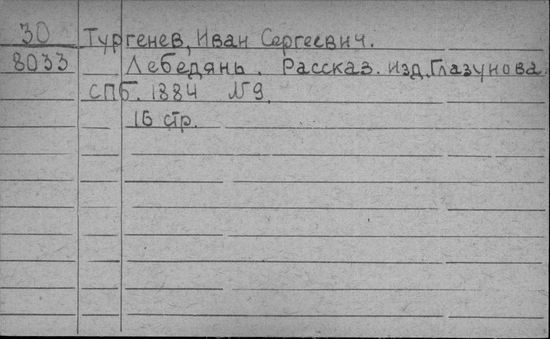 30 Тургенев, Иван Сергеевич.
8033 Лебедянь. Рассказ. изд. Глазунова.
СПб. 1884 №9.
16 стр.